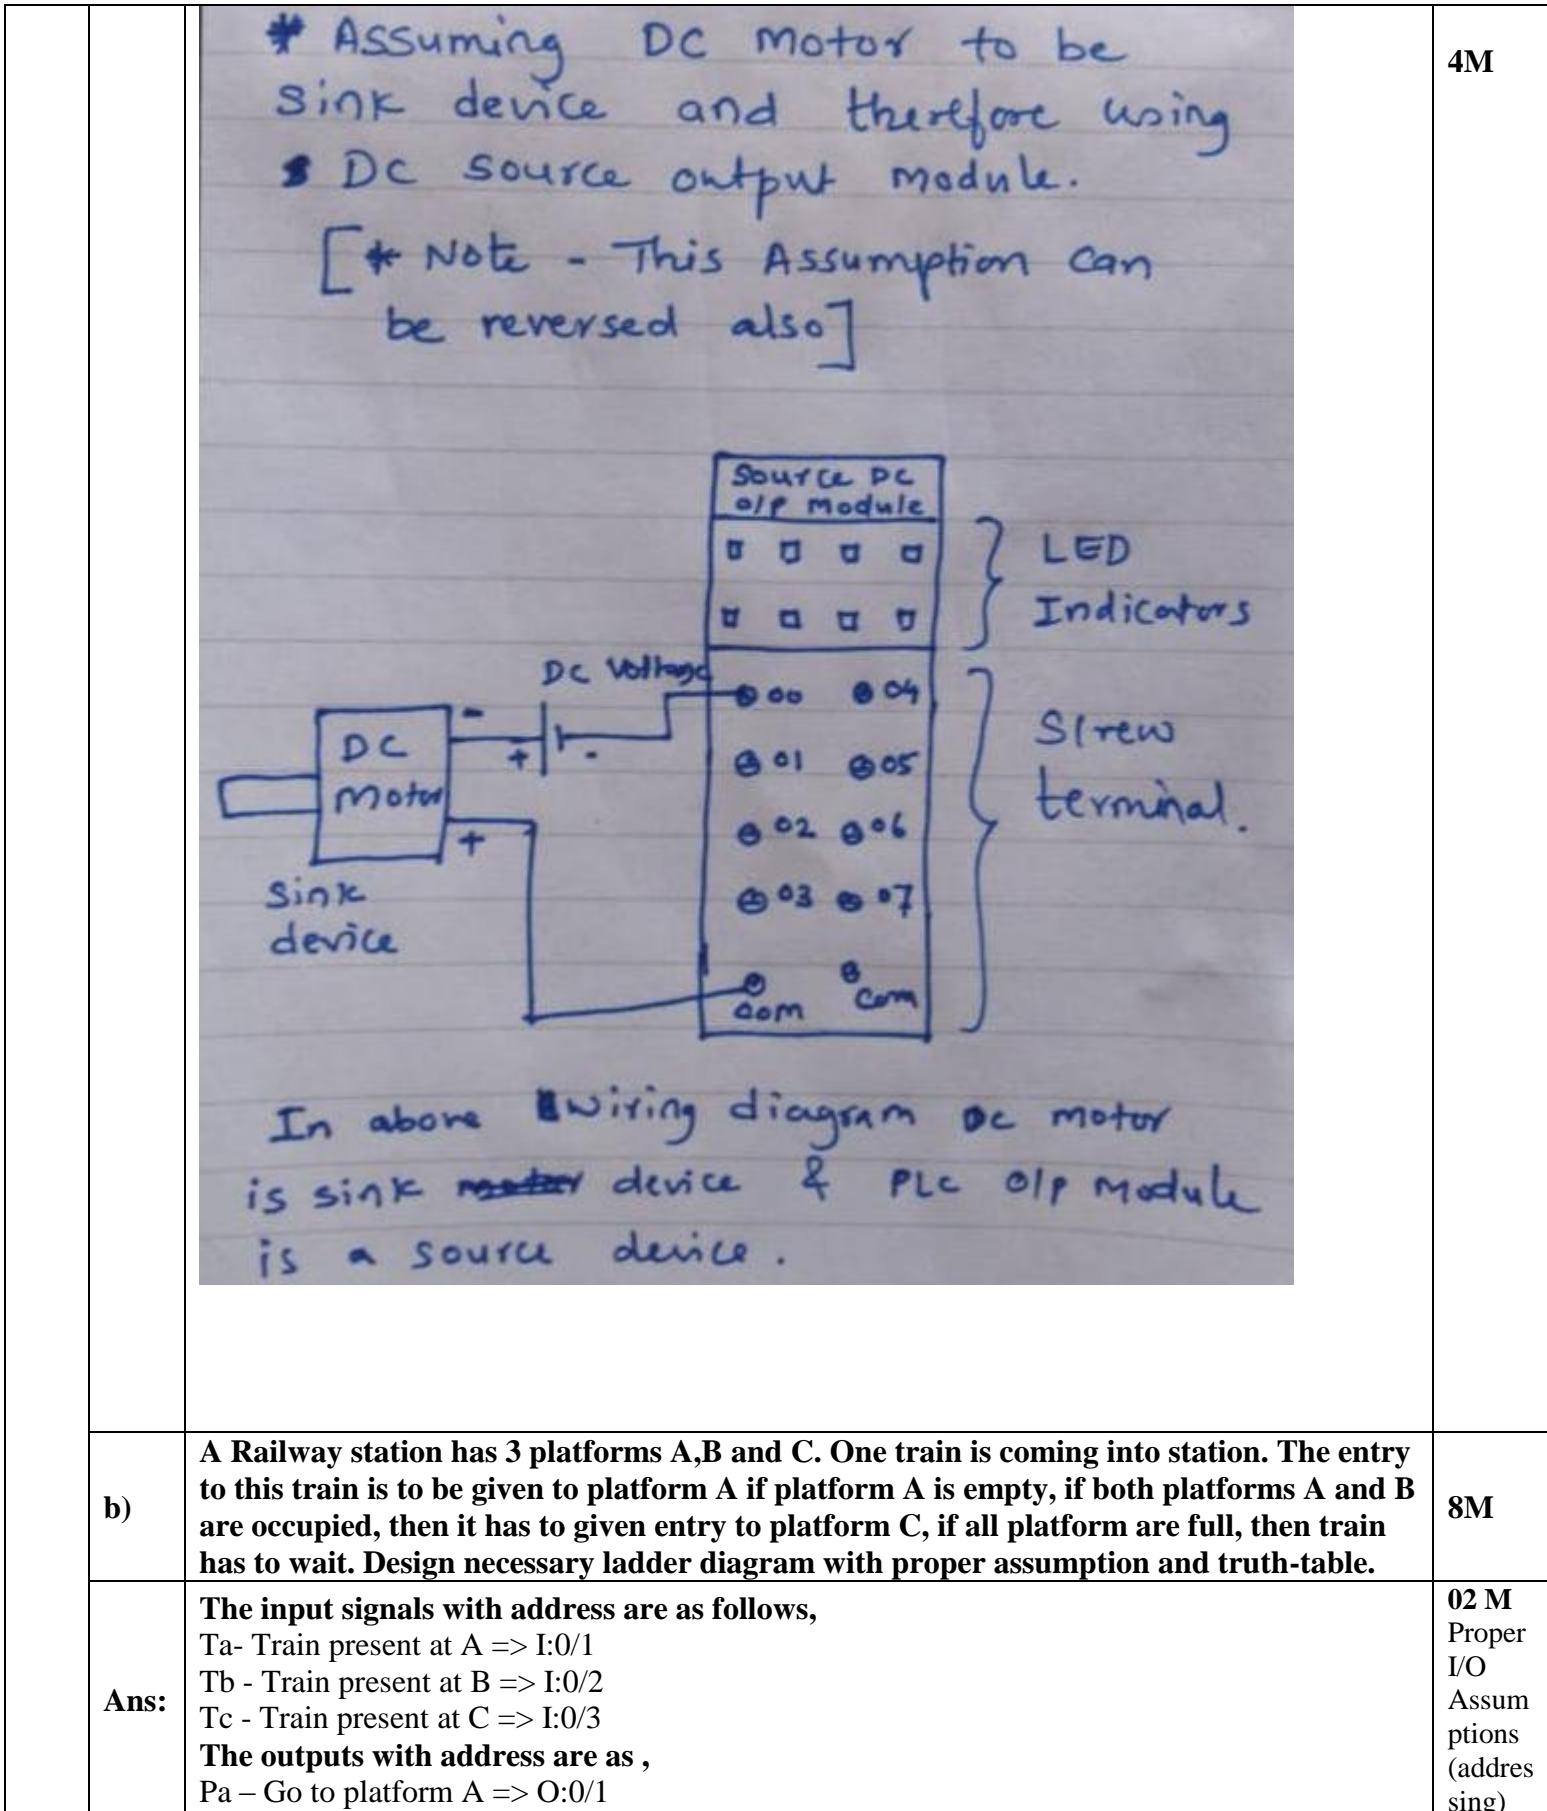 * Assuming DC motor to be
sink device and therefore using
DC source output module.
[* Note - This Assumption can
be reversed also]
4M
Source DC
o/p module
LED
Indicators
DC Voltage
00 04
01 05
02 06
03 07
com com
Screw
terminal.
-
+ -
DC
motor
+
Sink
device
In above wiring diagram DC motor
is sink device & PLC o/p module
is a source device.
b)
A Railway station has 3 platforms A,B and C. One train is coming into station. The entry
to this train is to be given to platform A if platform A is empty, if both platforms A and B
are occupied, then it has to given entry to platform C, if all platform are full, then train
has to wait. Design necessary ladder diagram with proper assumption and truth-table.
8M
Ans:
The input signals with address are as follows,
Ta- Train present at A => I:0/1
Tb - Train present at B => I:0/2
Tc - Train present at C => I:0/3
The outputs with address are as ,
Pa – Go to platform A => O:0/1
02 M
Proper
I/O
Assum
ptions
(addres
sing)